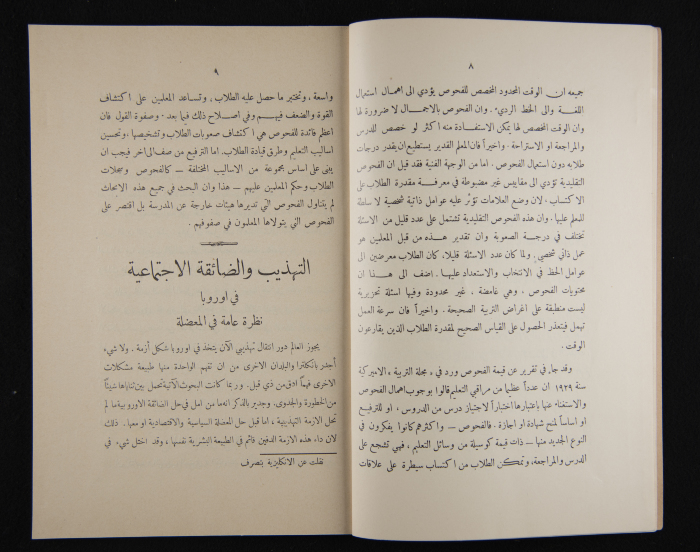 ٨
جميعه ان الوقت المحدود المخصص للفحوص يؤدي الى اهمال استعمال
اللغة والى الخط الرديء . وان الفحوص بالاجمال لا ضرورة لها
وان الوقت المخصص لها يمكن الاستفادة منه اكثر لو خصص للدرس
والمراجعة او الاستراحة . واخيراً فان المعلم القدير يستطيع ان يقدر درجات
طلابه دون استعمال الفحوص . اما من الوجهة الفنية فقد قيل ان الفحوص
التقليدية تؤدي الى مقاييس غير مضبوطة في معرفة مقدرة الطلاب على
الاكتساب ، لان وضع العلامات تؤثر عليه عوامل ذاتية شخصية لا سلطة
للمعلم عليها . وان هذه الفحوص التقليدية تشتمل على عدد قليل من الاسئلة
تختلف في درجة الصعوبة وان تقدير هذه من قبل المعلمين هو
عمل ذاتي شخصي . ولما كان عدد الاسئلة قليلا، كان الطلاب معرضين الى
عوامل الحظ في الانتخاب والاستعداد عليها . اضف الى هذا ان
محتويات الفحوص . وهي غامضة ، غير محدودة وفيها اسئلة تحزيرية
ليست منطبقة على اغراض التربية الصحيحة . واخيراً فان سرعة العمل
تهمل فيتعذر الحصول على القياس الصحيح لمقدرة الطلاب الذين يقارعون
الوقت .
وقد جاء في تقرير عن قيمة الفحوص ورد في « مجلة التربية » الاميركية
سنة ١٩٢٩ ان عدداً عظيما من مراقبي التعليم قالوا بوجوب اهمال الفحوص
والاستغناء عنها باعتبارها اختباراً لاجتياز درس من الدروس ، او للترفيع
او اساساً لمنح شهادة او اجازة . فالفحوص — واكثرهم كانوا يفكرون في
النوع الجديد منها — ذات قيمة كوسيلة من وسائل التعليم ، فهي تشجع على
الدرس والمراجعة، وتمكن الطلاب من اكتساب سيطرة على علاقات
٩
واسعة ، وتختبر ما حصل عليه الطلاب ، وتساعد المعلمين على اكتشاف
القوة والضعف فيهم وفي اصلاح ذلك فيما بعد . وصفوة القول فان
اعظم فائدة للفحوص هي اكتشاف صعوبات الطلاب وتشخيصها ، وتحسين
اساليب التعليم وطرق قيادة الطلاب. اما الترفيع من صف الى اخر فيجب ان
يبنى على اساس مجموعة من الاساليب المختلفة — كالفحوص وسجلات
الطلاب وحكم المعلمين عليهم — هذا وان البحث في جميع هذه الابحاث
لم يتناول الفحوص التي تديرها هيئات خارجة عن المدرسة بل اقتصر على
الفحوص التي يتولاها المعلمون في صفوفهم .
التهذيب والضائقة الاجتماعية
في اوروبا
نظرة عامة في المعضلة
يجوز العالم دور انتقال تهذيبي الآن يتخذ في اوروبا شكل أزمة . ولا شيء
أجدر بانكلترا والبلدان الاخرى من ان تفهم الواحدة منها طبيعة مشكلات
الاخرى فهماً ادق من ذي قبل . وربما كانت البحوث الآتية تحمل بين ثناياها شيئاً
من الخطورة والجدوى. وجدير بالذكر انه ما من امل في حل الضائقة الاوروبية ما لم
تحل الازمة التهذيبية ، اما قبل حل المعضلة السياسية والاقتصادية او معها . ذلك
لان داء هذه الازمة الدفين قائم في الطبيعة البشرية نفسها ، وقد اختل شيء في
نقلت عن الانكليزية بتصرف